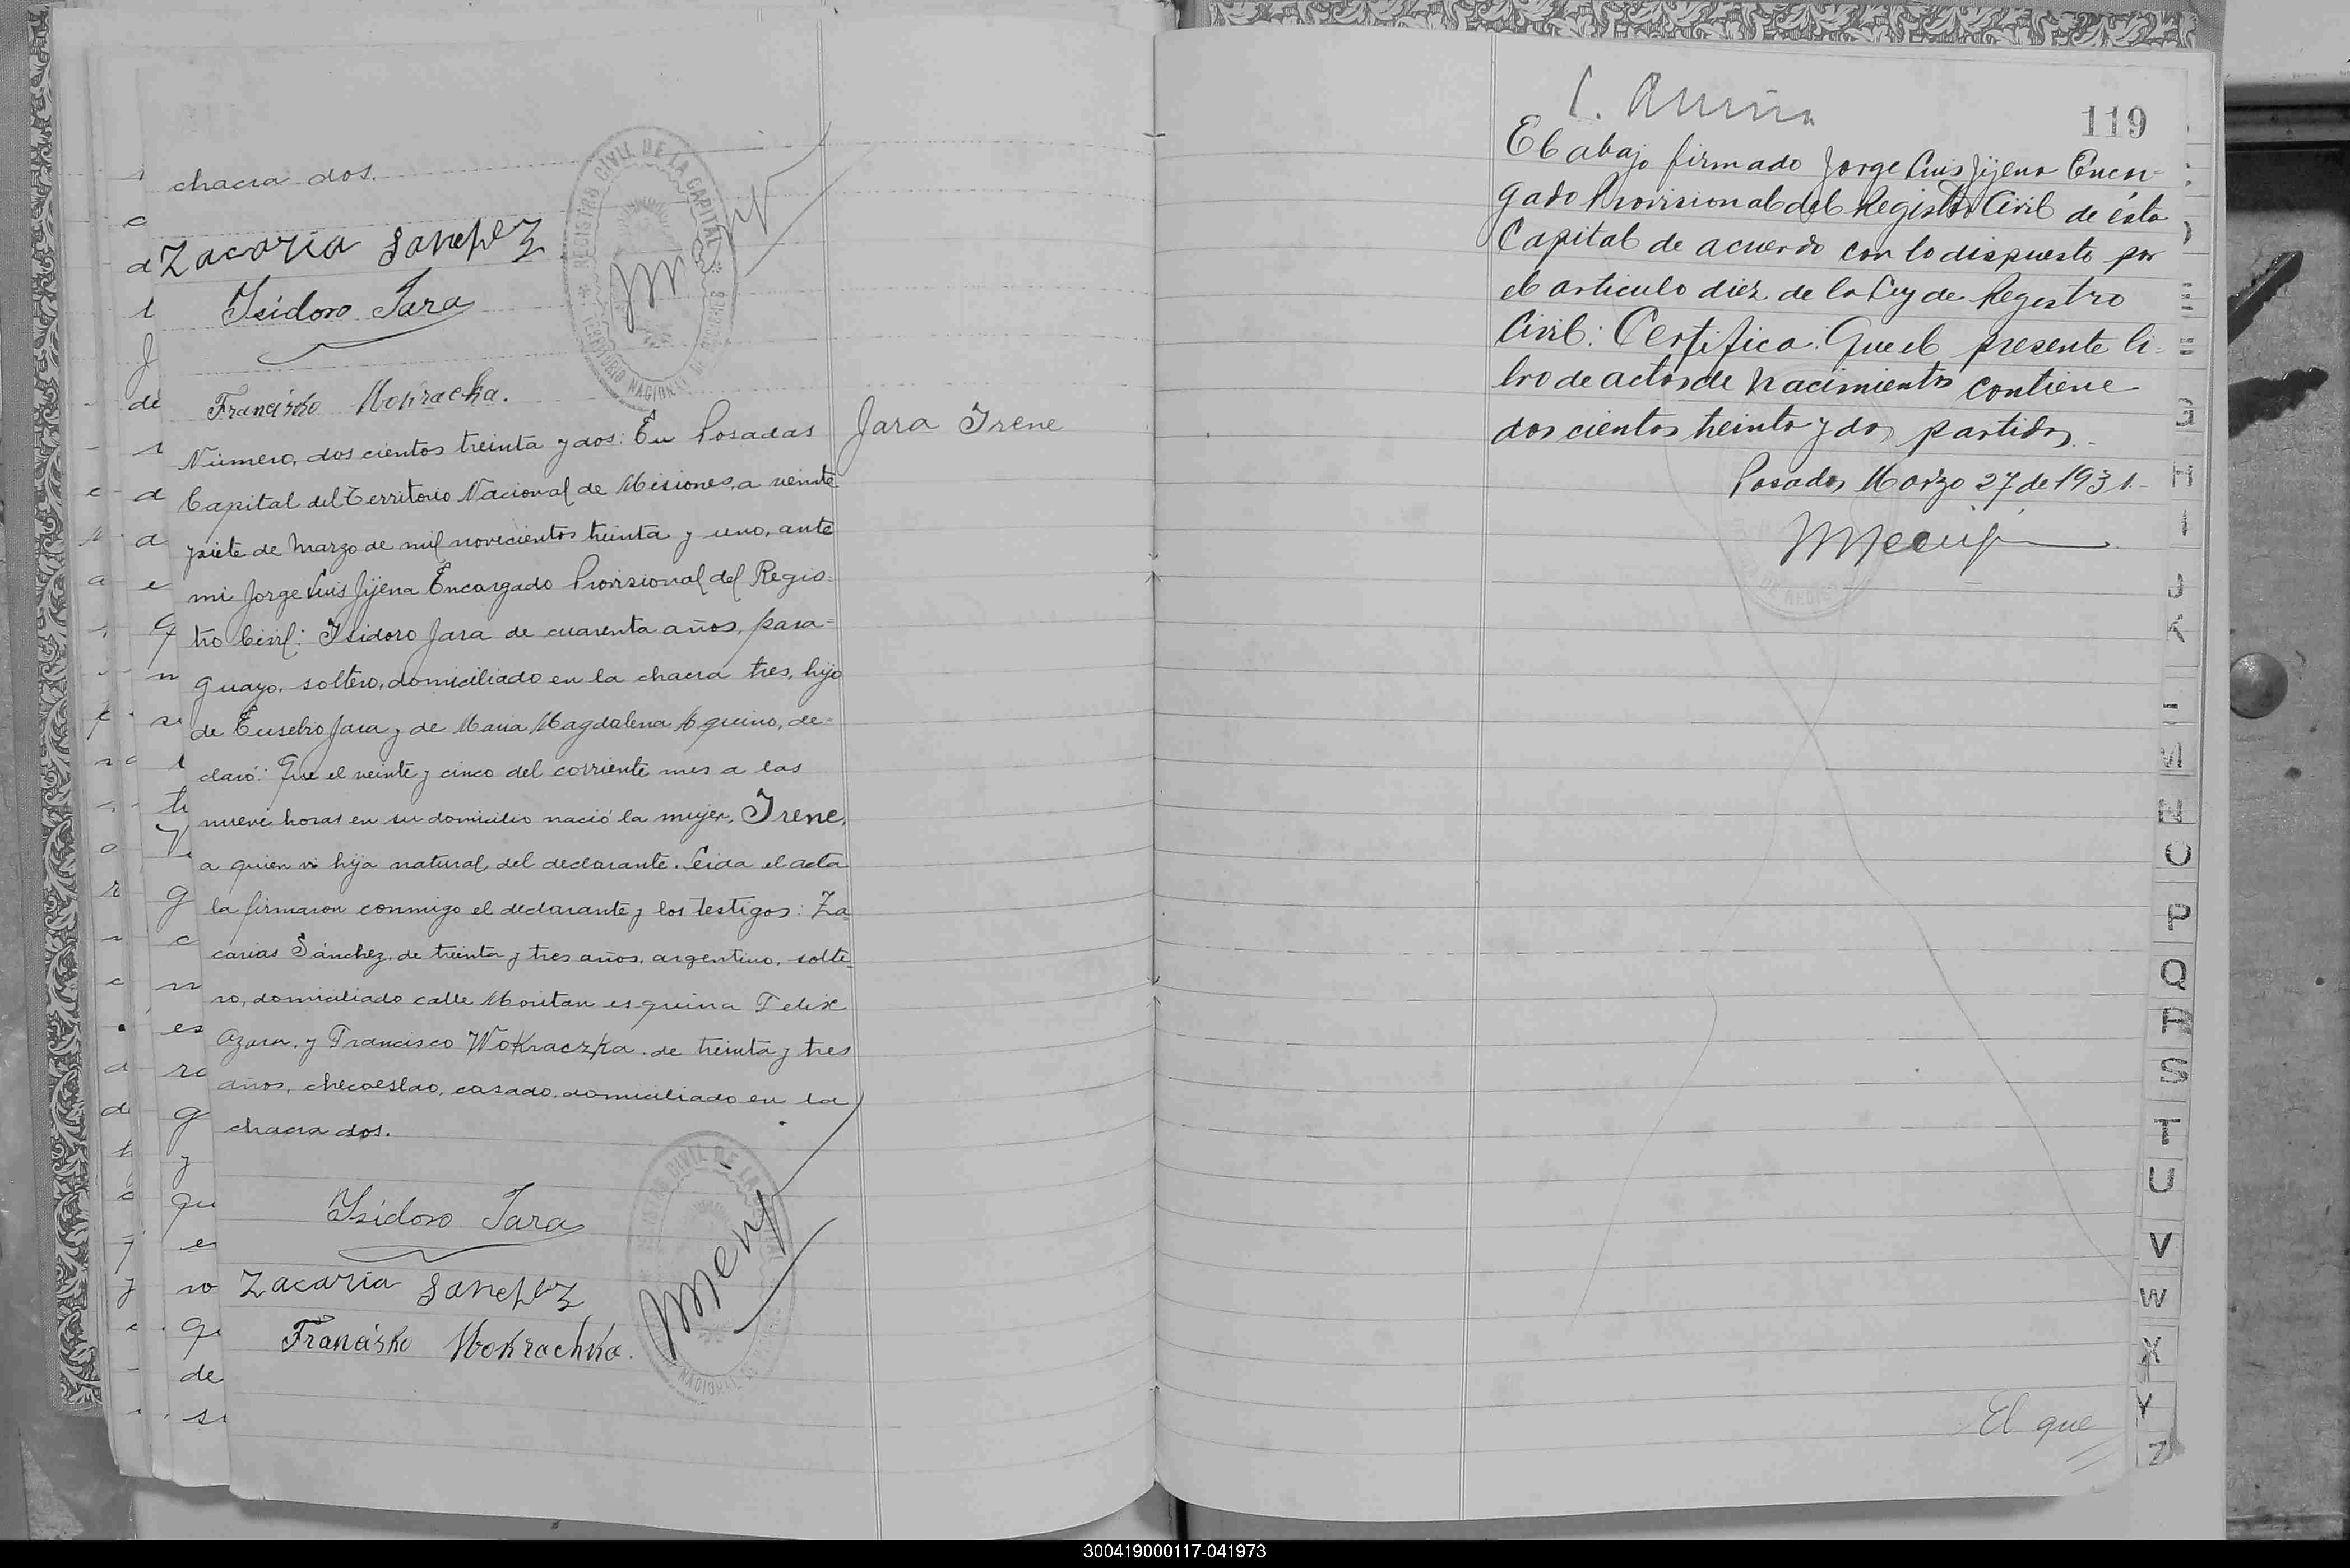 chacra dos.
Zacaria Sanchez
Isidoro Jara
Francisko Wokrachka.
REGISTRO CIVIL DE LA CAPITAL
TERRITORIO NACIONAL DE MISIONES
Jara Irene
Número, dos cientos treinta y dos: En Posadas
Capital del Territorio Nacional de Misiones, a veinte
y siete de Marzo de mil novecientos treinta y uno, ante
mi Jorge Luis Jijena Encargado Provisional del Regis=
tro Civil: Isidoro Jara de cuarenta años, para=
guayo, soltero, domiciliado en la chacra tres, hijo
de Eusebio Jara y de Maria Magdalena Aquino, de=
claró: Que el veinte y cinco del corriente mes a las
nueve horas en su domicilio nació la mujer, Irene,
a quien vi hija natural del declarante. Leida el acta
la firmaron conmigo el declarante y los testigos: Za
carias Sánchez, de treinta y tres años, argentino, solte=
ro, domiciliado calle Moritan esquina Felix
Azara, y Francisco Wokraczka de treinta y tres
años, checoeslao, casado, domiciliado en la
chacra dos.
Isidoro Jara
Zacaria Sanchez
Francisko Wokrachka.
119
El abajo firmado Jorge Luis Jijena Encar=
gado Provisional del Registro Civil de ésta
Capital de acuerdo con lo dispuesto por
el articulo diez de la Ley de Registro
Civil: Certifica: Que el presente li=
bro de actas de nacimientos contiene
dos cientos treinta y dos partidas.-
Posadas Marzo 27 de 1931.-
El que
H
I
J
K
M
N
O
P
Q
R
S
T
U
V
W
X
Y
Z
300419000117-041973